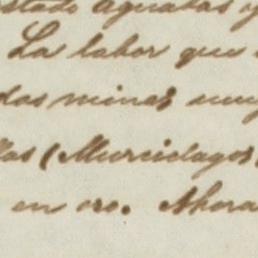 stado aguatas y
La labor que
das minas muy
las (Murcielagos)
en oro. Ahora